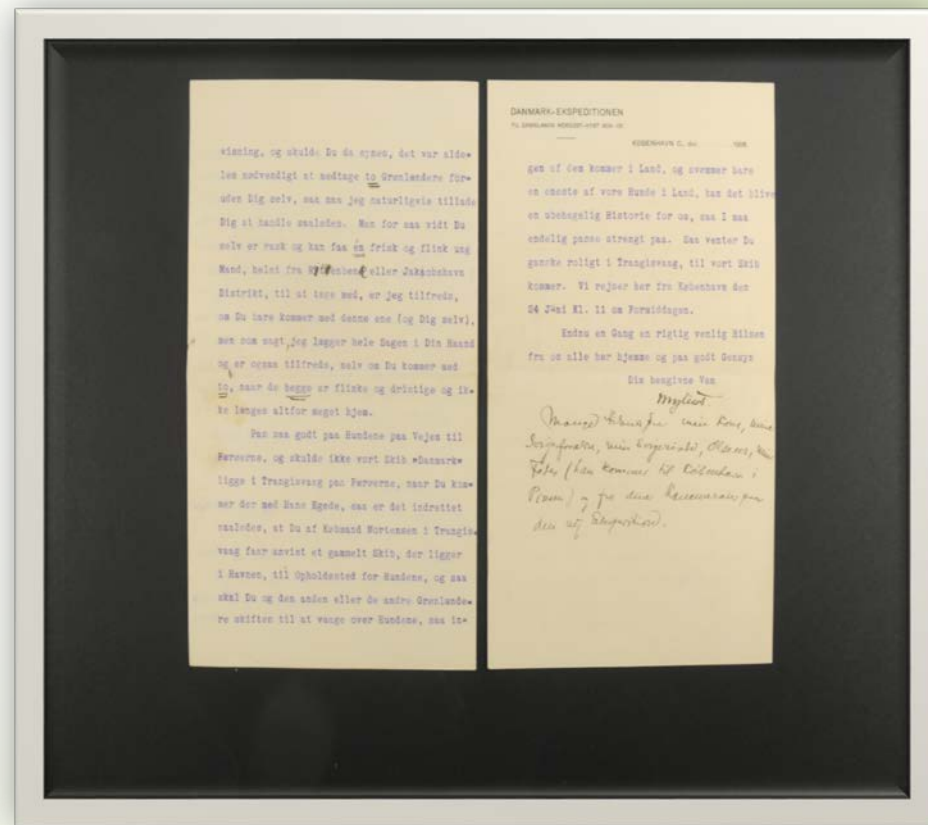 visning, og skulde Du da synes, det var alde-
les nødvendigt at medtage to Grønlændere for-
uden Dig selv, saa maa jeg naturligvis tillade
Dig at handle saaledes. Men for saa vidt Du
selv er rask og kan faa én frisk og flink ung
Mand, helst fra eller Jakobshavn
Distrikt, til at tage med, er jeg tilfreds,
om Du bare kommer med denne ene (og Dig selv),
men som sagt, jeg lægger hele Sagen i Din Haand
og er ogsaa tilfreds, selv om Du kommer med
to, naar de begge er flinke og dristige og ik-
ke længes altfor meget hjem.
Pas saa godt paa Hundene paa Vejen til
Færøerne, og skulde ikke vort Skib "Danmark"
ligge i Trangisvang paa Færøerne, naar Du kom-
mer der med Hans Egede, saa er det indrettet
saaledes, at Du af Købmand Mortensen i Trangis-
vaag faar anvist et gammelt Skib, der ligger
i Havnen, til Opholdssted for Hundene, og saa
skal Du og den anden eller de andre Grønlænde-
re skiftes til at vaage over Hundene, saa in-
DANMARK-EKSPEDITIONEN
TIL GRØNLANDS NORDØST-KYST
KØBENHAVN D., den 190
gen af dem kommer i Land, og svømmer bare
en eneste af vore Hunde i Land, kan det blive
en ubehagelig Historie for os, saa I maa
endelig passe strengt paa. Saa venter Du
ganske roligt i Trangisvang, til vort Skib
kommer. Vi rejser her fra København den
24 Juni Kl. 11 om Formiddagen.
Endnu en Gang en rigtig venlig Hilsen
fra os alle her hjemme og paa godt Gensyn
Din hengivne Ven
Mylius.
Mange Hilsner fra min Kone, mine
Svigerforældre, min Svigerinde,
(han kommer til København i
) og fra dine Kammerater fra
den Ekspedition.